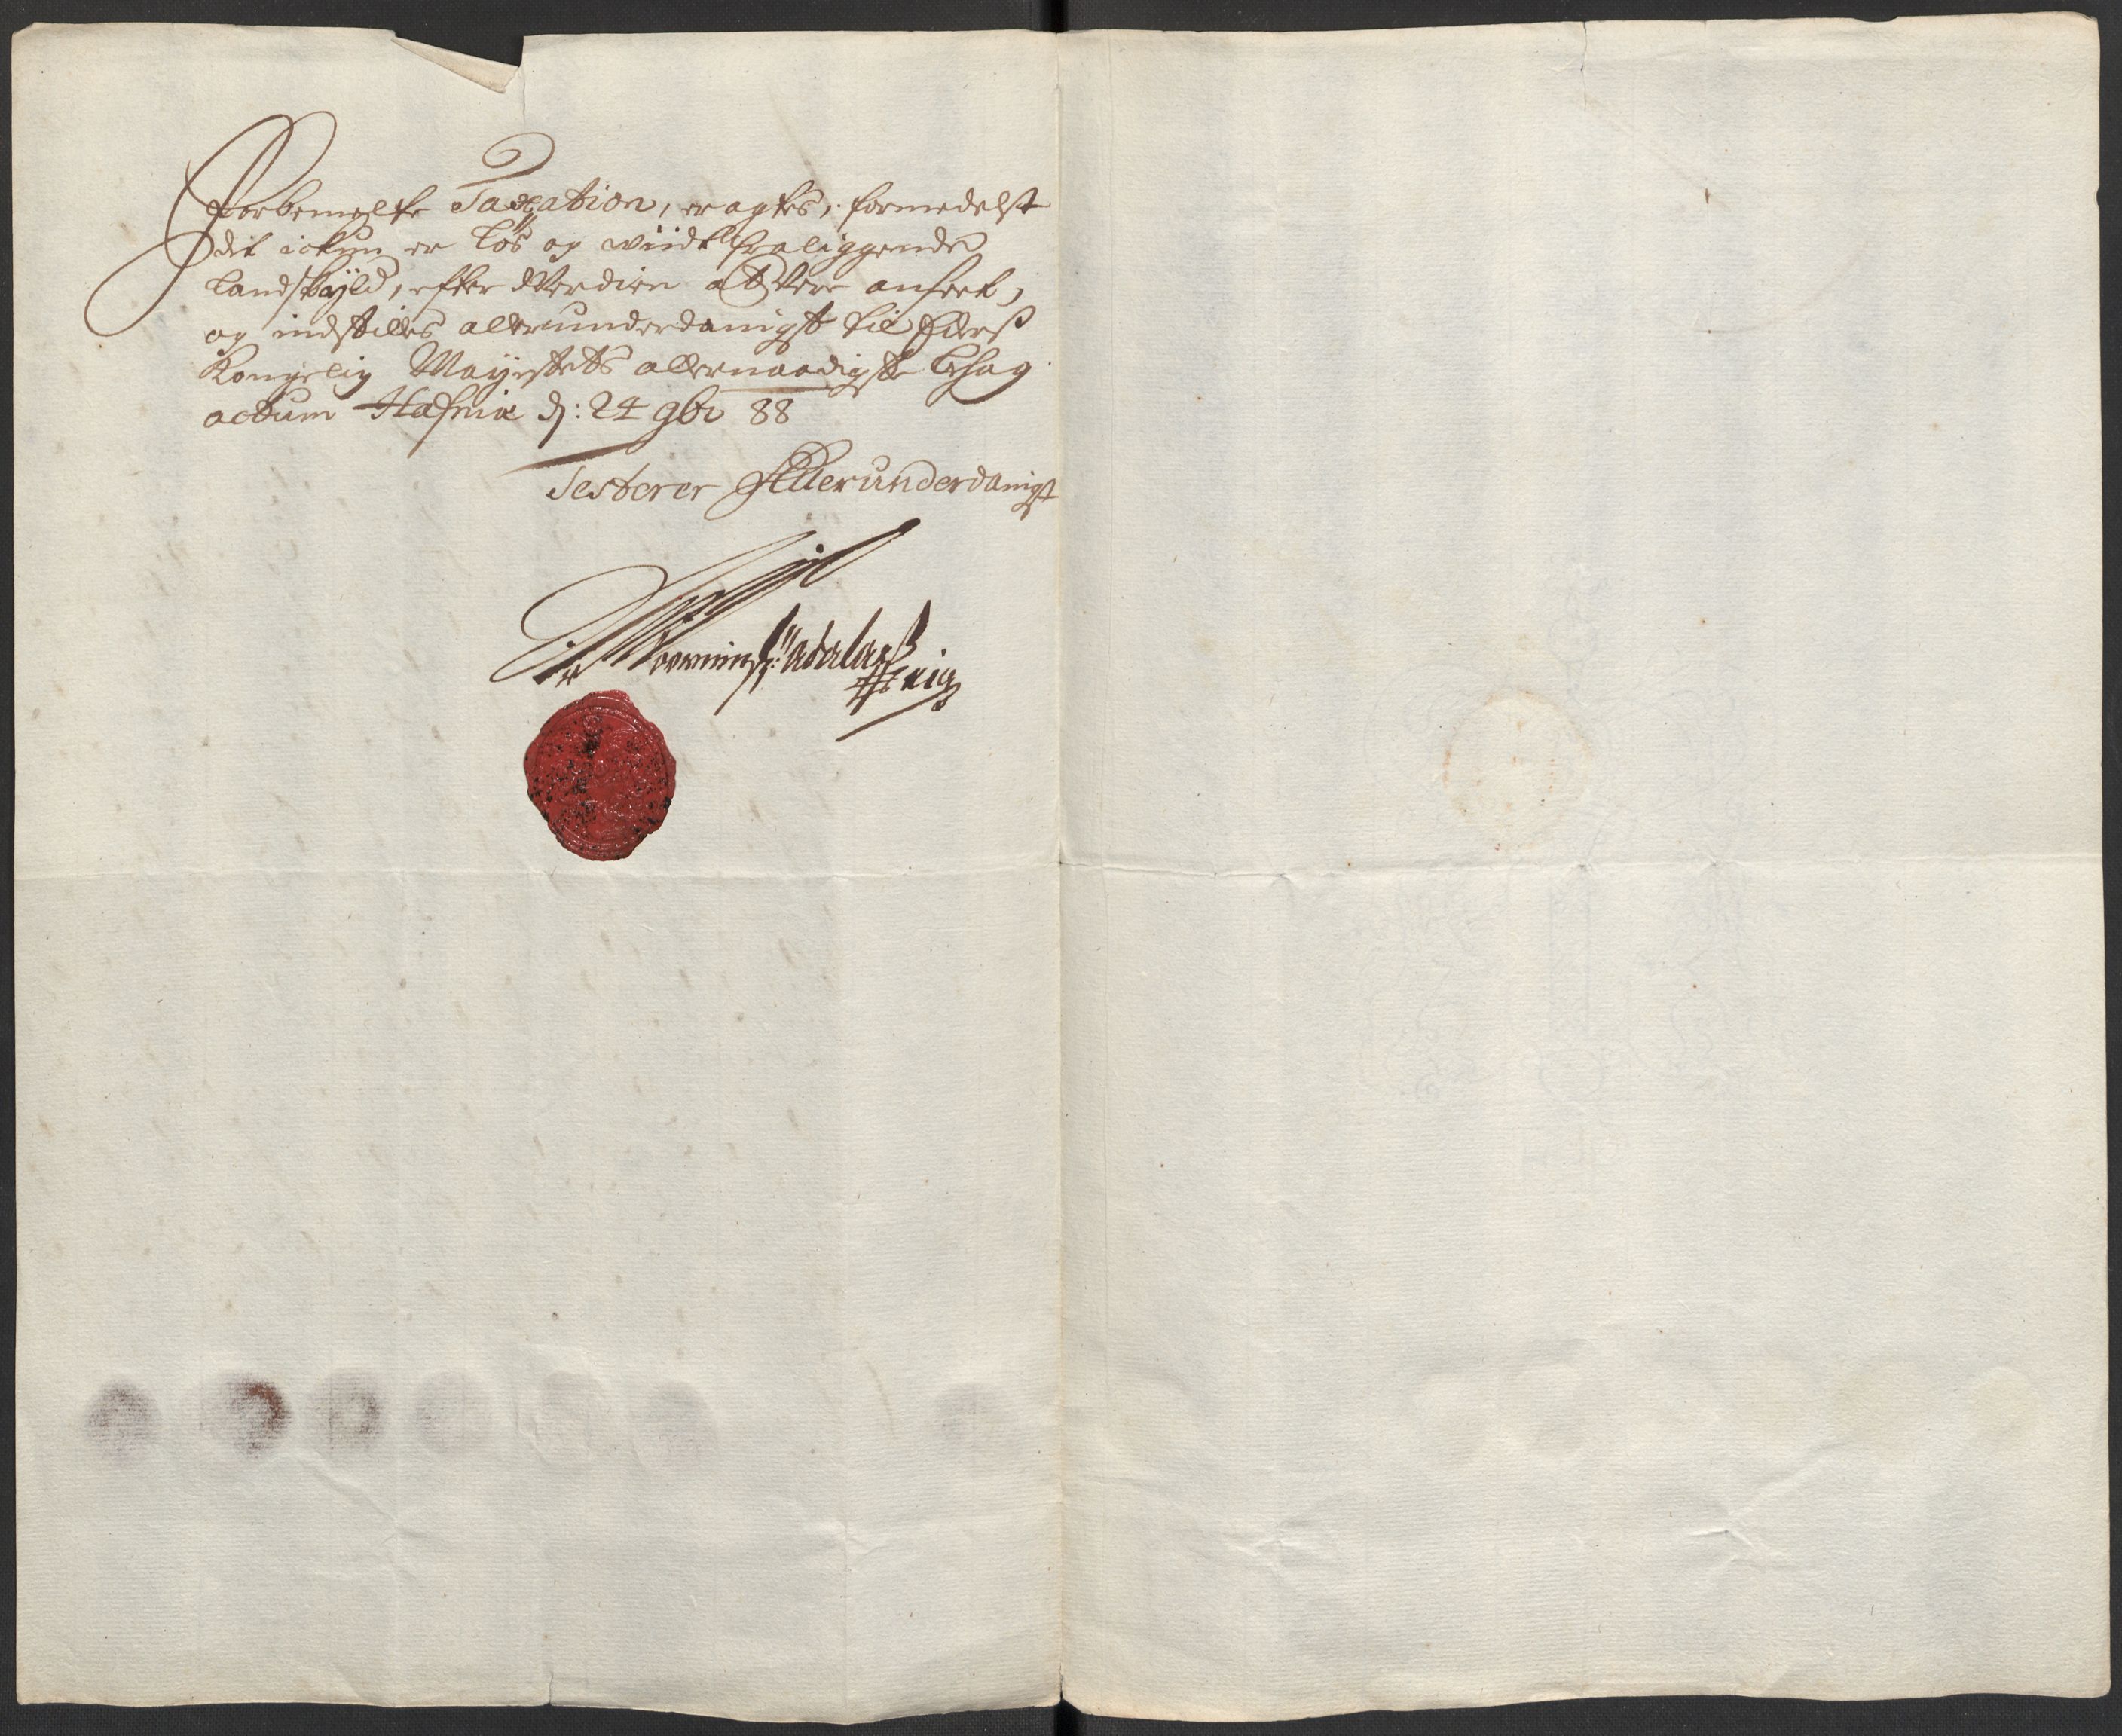 Forbemelte Taxation, eragtes, formedelst
dit ickun er löß og wiidt fraliggende
Landskÿld, efter Werdien at were anseet,
og indstilles allerunderdanigst til Eders
Kongelig Mayestets allernaadigste behag
actum Hafniæ d: 24 9br 88
Testerer Allerunderdanigst